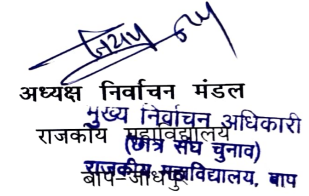 अध्यक्ष निर्वाचन मंडल
मुख्य निर्वाचन अधिकारी
राजकीय महाविद्यालय
(छात्र संघ चुनाव)
राजकीय महाविद्यालय, बाप
बाप-जोधपुर